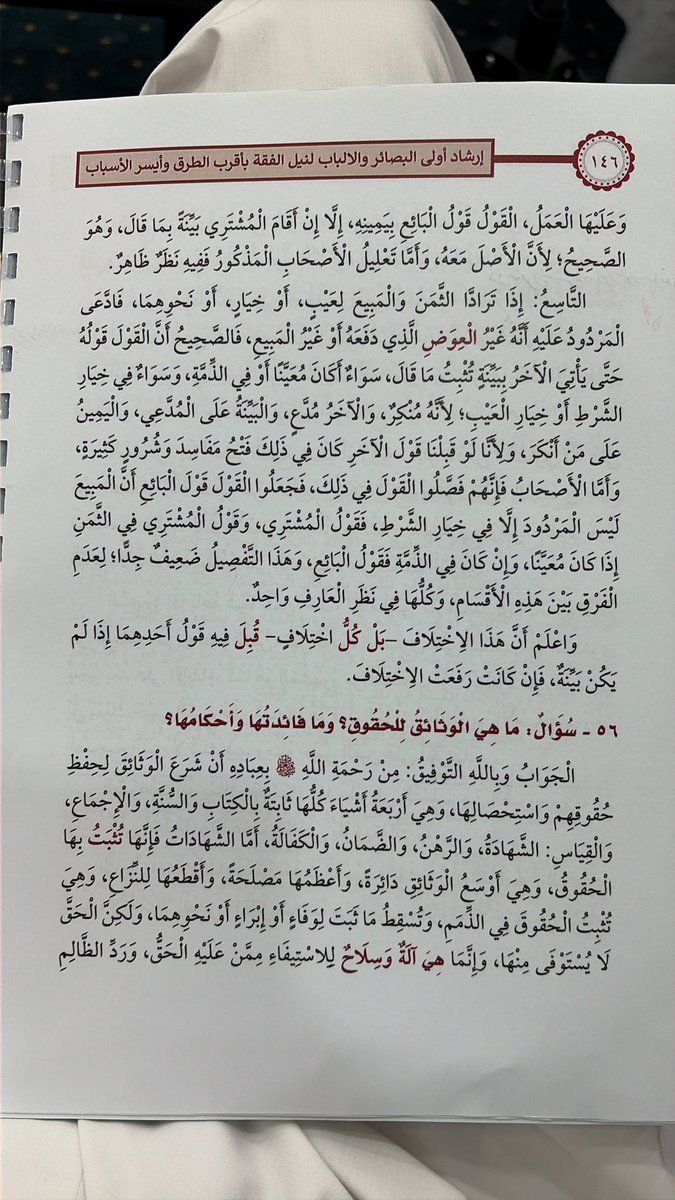 ١٤٦
إرشاد أولى البصائر والالباب لنيل الفقة بأقرب الطرق وأيسر الأسباب
وَعَلَيْهَا الْعَمَلُ، الْقَوْلُ قَوْلُ الْبَائِعِ بِيَمِينِهِ، إِلَّا إِنْ أَقَامَ الْمُشْتَرِي بَيِّنَةً بِمَا قَالَ، وَهُوَ
الصَّحِيحُ؛ لِأَنَّ الْأَصْلَ مَعَهُ، وَأَمَّا تَعْلِيلُ الْأَصْحَابِ الْمَذْكُورُ فَفِيهِ نَظَرٌ ظَاهِرٌ.
التَّاسِعُ: إِذَا تَرَادَّا الثَّمَنَ وَالْمَبِيعَ لِعَيْبٍ، أَوْ خِيَارٍ، أَوْ نَحْوِهِمَا، فَادَّعَى
الْمَرْدُودُ عَلَيْهِ أَنَّهُ غَيْرُ الْعِوَضِ الَّذِي دَفَعَهُ أَوْ غَيْرُ الْمَبِيعِ، فَالصَّحِيحُ أَنَّ الْقَوْلَ قَوْلُهُ
حَتَّى يَأْتِيَ الْآخَرُ بِبَيِّنَةٍ تُثْبِتُ مَا قَالَ، سَوَاءٌ أَكَانَ مُعَيَّنًا أَوْ فِي الذِّمَّةِ، وَسَوَاءٌ فِي خِيَارِ
الشَّرْطِ أَوْ خِيَارِ الْعَيْبِ؛ لِأَنَّهُ مُنْكِرٌ، وَالْآخَرُ مُدَّعٍ، وَالْبَيِّنَةُ عَلَى الْمُدَّعِي، وَالْيَمِينُ
عَلَى مَنْ أَنْكَرَ، وَلِأَنَّا لَوْ قَبِلْنَا قَوْلَ الْآخَرِ كَانَ فِي ذَلِكَ فَتْحُ مَفَاسِدَ وَشُرُورٍ كَثِيرَةٍ،
وَأَمَّا الْأَصْحَابُ فَإِنَّهُمْ فَصَّلُوا الْقَوْلَ فِي ذَلِكَ، فَجَعَلُوا الْقَوْلَ قَوْلَ الْبَائِعِ أَنَّ الْمَبِيعَ
لَيْسَ الْمَرْدُودَ إِلَّا فِي خِيَارِ الشَّرْطِ، فَقَوْلُ الْمُشْتَرِي، وَقَوْلُ الْمُشْتَرِي فِي الثَّمَنِ
إِذَا كَانَ مُعَيَّنًا، وَإِنْ كَانَ فِي الذِّمَّةِ فَقَوْلُ الْبَائِعِ، وَهَذَا التَّفْصِيلُ ضَعِيفٌ جِدًّا؛ لِعَدَمِ
الْفَرْقِ بَيْنَ هَذِهِ الْأَقْسَامِ، وَكُلُّهَا فِي نَظَرِ الْعَارِفِ وَاحِدٌ.
وَاعْلَمْ أَنَّ هَذَا الِاخْتِلَافَ –بَلْ كُلُّ اخْتِلَافٍ– قُبِلَ فِيهِ قَوْلُ أَحَدِهِمَا إِذَا لَمْ
يَكُنْ بَيِّنَةٌ، فَإِنْ كَانَتْ رَفَعَتْ الِاخْتِلَافَ.
٥٦ - سُؤَالٌ: مَا هِيَ الْوَثَائِقُ لِلْحُقُوقِ؟ وَمَا فَائِدَتُهَا وَأَحْكَامُهَا؟
الْجَوَابُ وَبِاللَّهِ التَّوْفِيقُ: مِنْ رَحْمَةِ اللَّهِ بِعِبَادِهِ أَنْ شَرَعَ الْوَثَائِقَ لِحِفْظِ
حُقُوقِهِمْ وَاسْتِحْصَالِهَا، وَهِيَ أَرْبَعَةُ أَشْيَاءَ كُلُّهَا ثَابِتَةٌ بِالْكِتَابِ وَالسُّنَّةِ، وَالْإِجْمَاعِ،
وَالْقِيَاسِ: الشَّهَادَةُ، وَالرَّهْنُ، وَالضَّمَانُ، وَالْكَفَالَةُ، أَمَّا الشَّهَادَاتُ فَإِنَّهَا تُثْبَتُ بِهَا
الْحُقُوقُ، وَهِيَ أَوْسَعُ الْوَثَائِقِ دَائِرَةً، وَأَعْظَمُهَا مَصْلَحَةً، وَأَقْطَعُهَا لِلنِّزَاعِ، وَهِيَ
تُثْبِتُ الْحُقُوقَ فِي الذِّمَمِ، وَتُسْقِطُ مَا ثَبَتَ لِوَفَاءٍ أَوْ إِبْرَاءٍ أَوْ نَحْوِهِمَا، وَلَكِنَّ الْحَقَّ
لَا يُسْتَوْفَى مِنْهَا، وَإِنَّمَا هِيَ آلَةٌ وَسِلَاحٌ لِلِاسْتِيفَاءِ مِمَّنْ عَلَيْهِ الْحَقُّ، وَرَدِّ الظَّالِمِ